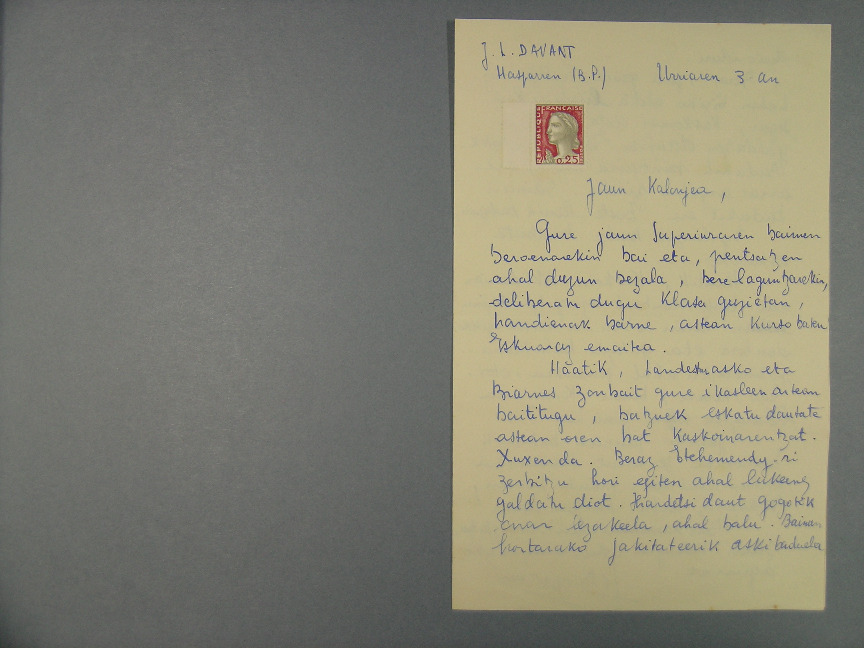 J. L. DAVANT
Hasparren (B.P.) Urriaren 3 an
REPUBLIQUE FRANCAISE
0,25
Jaun Kalonjea,
Gure jaun Superiuraren baimen
beroenarekin bai eta, pentsatzen
ahal duzun bezala, bere laguntzarekin,
deliberatu dugu klasa guzietan,
handienak barne, astean kurso baten
Eskuaraz emaitea.
Haatik, Landes asko eta
Biarnes zonbait gure ikasleen artean
baititugu, batzuek eskatu dautate
astean oren bat Kaskoinarentzat.
Xuxen da. Beraz Etchemendy-ri
zerbitzu hori egiten ahal lukeenez
galdatu diot. Ihardetsi daut gogotik
onar lezakeela, ahal balu. Bainan
hortarako jakitaterik aski baduela